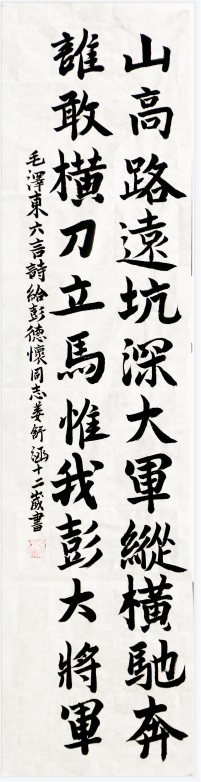 山高路遠坑深大軍縱橫馳奔
誰敢橫刀立馬惟我彭大將軍
毛澤東六言詩給彭德懷同志姜舒涵十二歲書